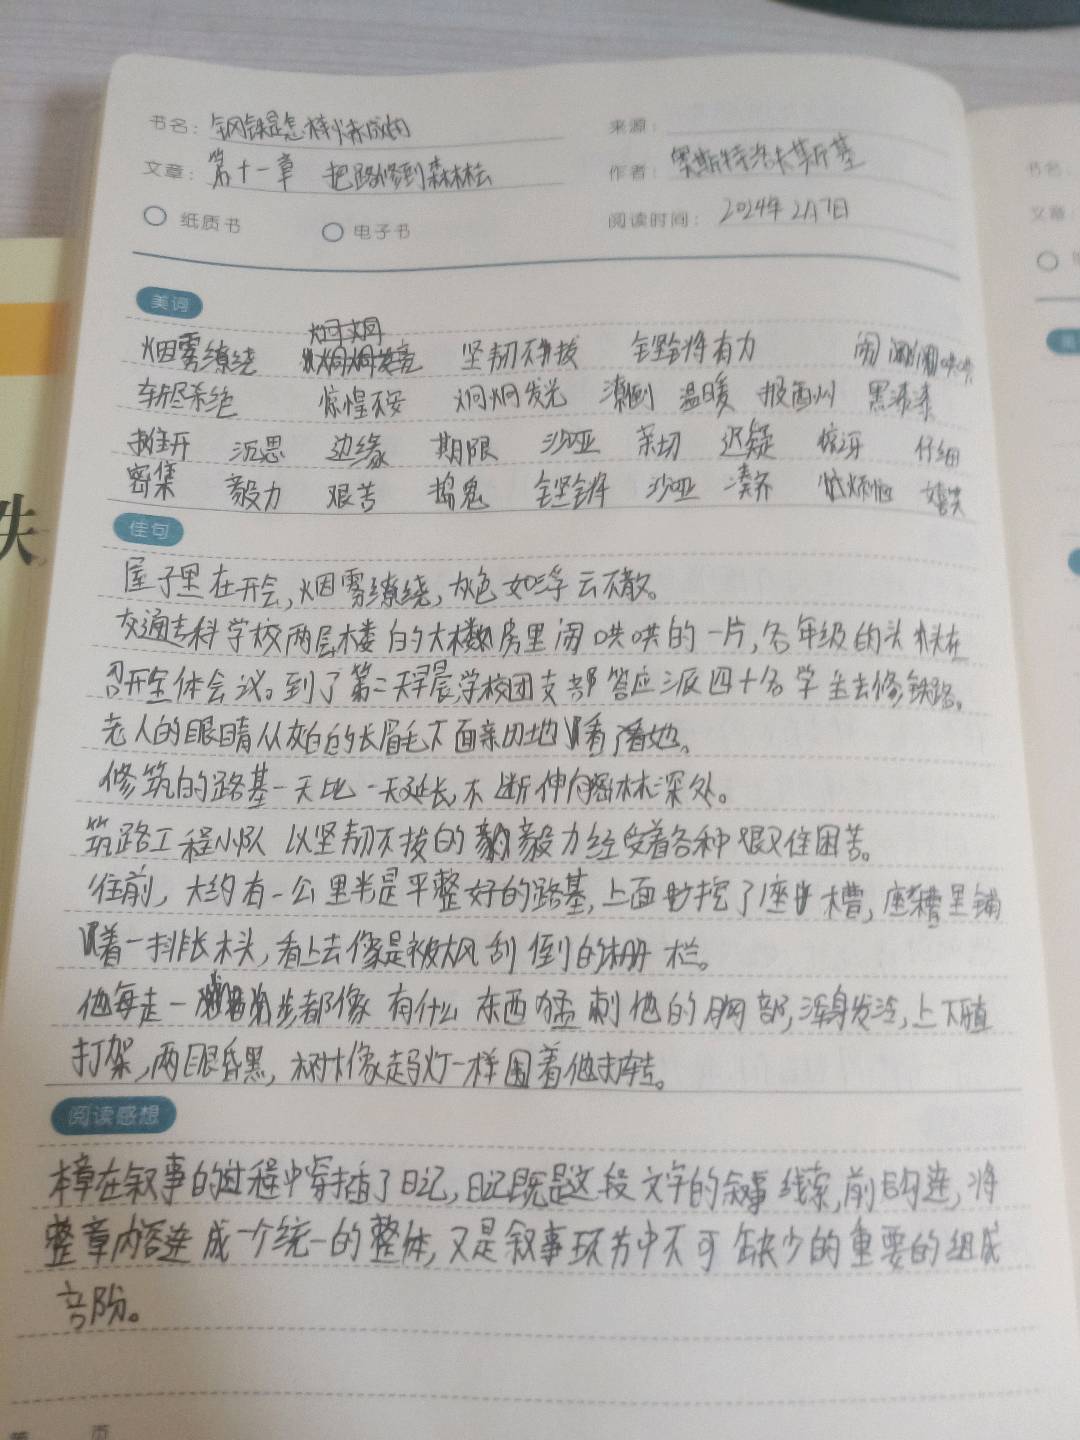 书名：钢铁是怎样炼成的 来源：
文章：第十一章 把路修到森林去 作者：奥斯特洛夫斯基
纸质书 电子书 阅读时间：2024年2月7日
美词
烟雾缭绕 炯炯 坚韧不拔 铿锵有力 闹哄哄
斩尽杀绝 惊惶不安 炯炯发光 潦倒 温暖 黑漆漆
推开 沉思 边缘 期限 沙哑 亲切 迟疑 惊讶 仔细
密集 毅力 艰苦 捣鬼 铿锵 沙哑 凑齐
佳句
屋子里在开会，烟雾缭绕，灰色如浮云不散。
交通专科学校两层楼的大楼房里闹哄哄的一片，各年级的头头在
召开全体会议。到了第二天早晨，学校团支部答应派四十名学生去修铁路。
老人的眼睛从灰白的长眉毛下面亲切地看了看她。
修筑的路基一天比一天延长，不断伸向密林深处。
筑路工程小队以坚韧不拔的毅力经受着各种艰难困苦。
往前，大约有一公里半是平整好的路基，上面挖了座槽，座槽里铺
着一排长木头，看上去像是被大风刮倒的栅栏。
他每走一步都像有什么东西猛刺他的胸部，浑身发冷，上下牙直
打架，两眼昏黑，树木像走马灯一样围着他打转。
阅读感想
本章在叙事的过程中穿插了日记，日记既是这段文字的叙事线索，前后勾连，将
整章内容连成一个统一的整体，又是叙事环节中不可缺少的重要的组成
部份。
第 页